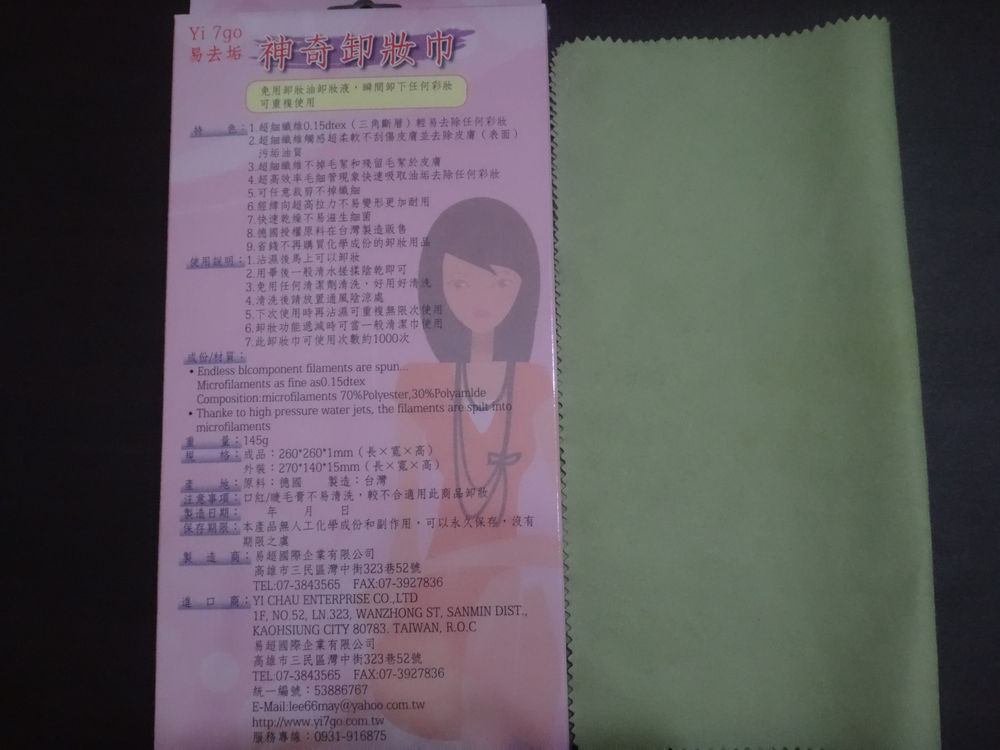 Yi 7go
易去垢
神奇卸妝巾
免用卸妝油卸妝液，瞬間卸下任何彩妝
可重複使用
特　色：1.超細纖維0.15dtex（三角斷層）輕易去除任何彩妝
2.超細纖維觸感超柔軟不刮傷皮膚並去除皮膚（表面）
污垢油質
3.超細纖維不掉毛絮和殘留毛絮於皮膚
4.超高效率毛細管現象快速吸取油垢去除任何彩妝
5.可任意裁剪不掉纖細
6.經緯向超高拉力不易變形更加耐用
7.快速乾燥不易滋生細菌
8.德國授權原料在台灣製造販售
9.省錢不再購買化學成份的卸妝用品
使用說明：1.沾濕後馬上可以卸妝
2.用畢後一般清水搓揉陰乾即可
3.免用任何清潔劑清洗，好用好清洗
4.清洗後請放置通風陰涼處
5.下次使用時再沾濕可重複無限次使用
6.卸妝功能遞減時可當一般清潔巾使用
7.此卸妝巾可使用次數約1000次
成份/材質：
• Endless blcomponent filaments are spun...
Microfilaments as fine as0.15dtex
Composition:microfilaments 70%Polyester,30%Polyamlde
• Thanke to high pressure water jets, the filaments are spilt into
microfilaments
重　量：145g
規　格：成品：260*260*1mm（長×寬×高）
外裝：270*140*15mm（長×寬×高）
產　地：原料：德國　製造：台灣
注意事項：口紅/睫毛膏不易清洗，較不合適用此商品卸妝
製造日期：　年　月　日
保存期限：本產品無人工化學成份和副作用，可以永久保存，沒有
期限之虞
製　造　商：易超國際企業有限公司
高雄市三民區灣中街323巷52號
TEL:07-3843565　FAX:07-3927836
進　口　商：YI CHAU ENTERPRISE CO.,LTD
1F, NO.52, LN.323, WANZHONG ST, SANMIN DIST.,
KAOHSIUNG CITY 80783. TAIWAN, R.O.C
易超國際企業有限公司
高雄市三民區灣中街323巷52號
TEL:07-3843565　FAX:07-3927836
統一編號：53886767
E-Mail:lee66may@yahoo.com.tw
http://www.yi7go.com.tw
服務專線：0931-916875